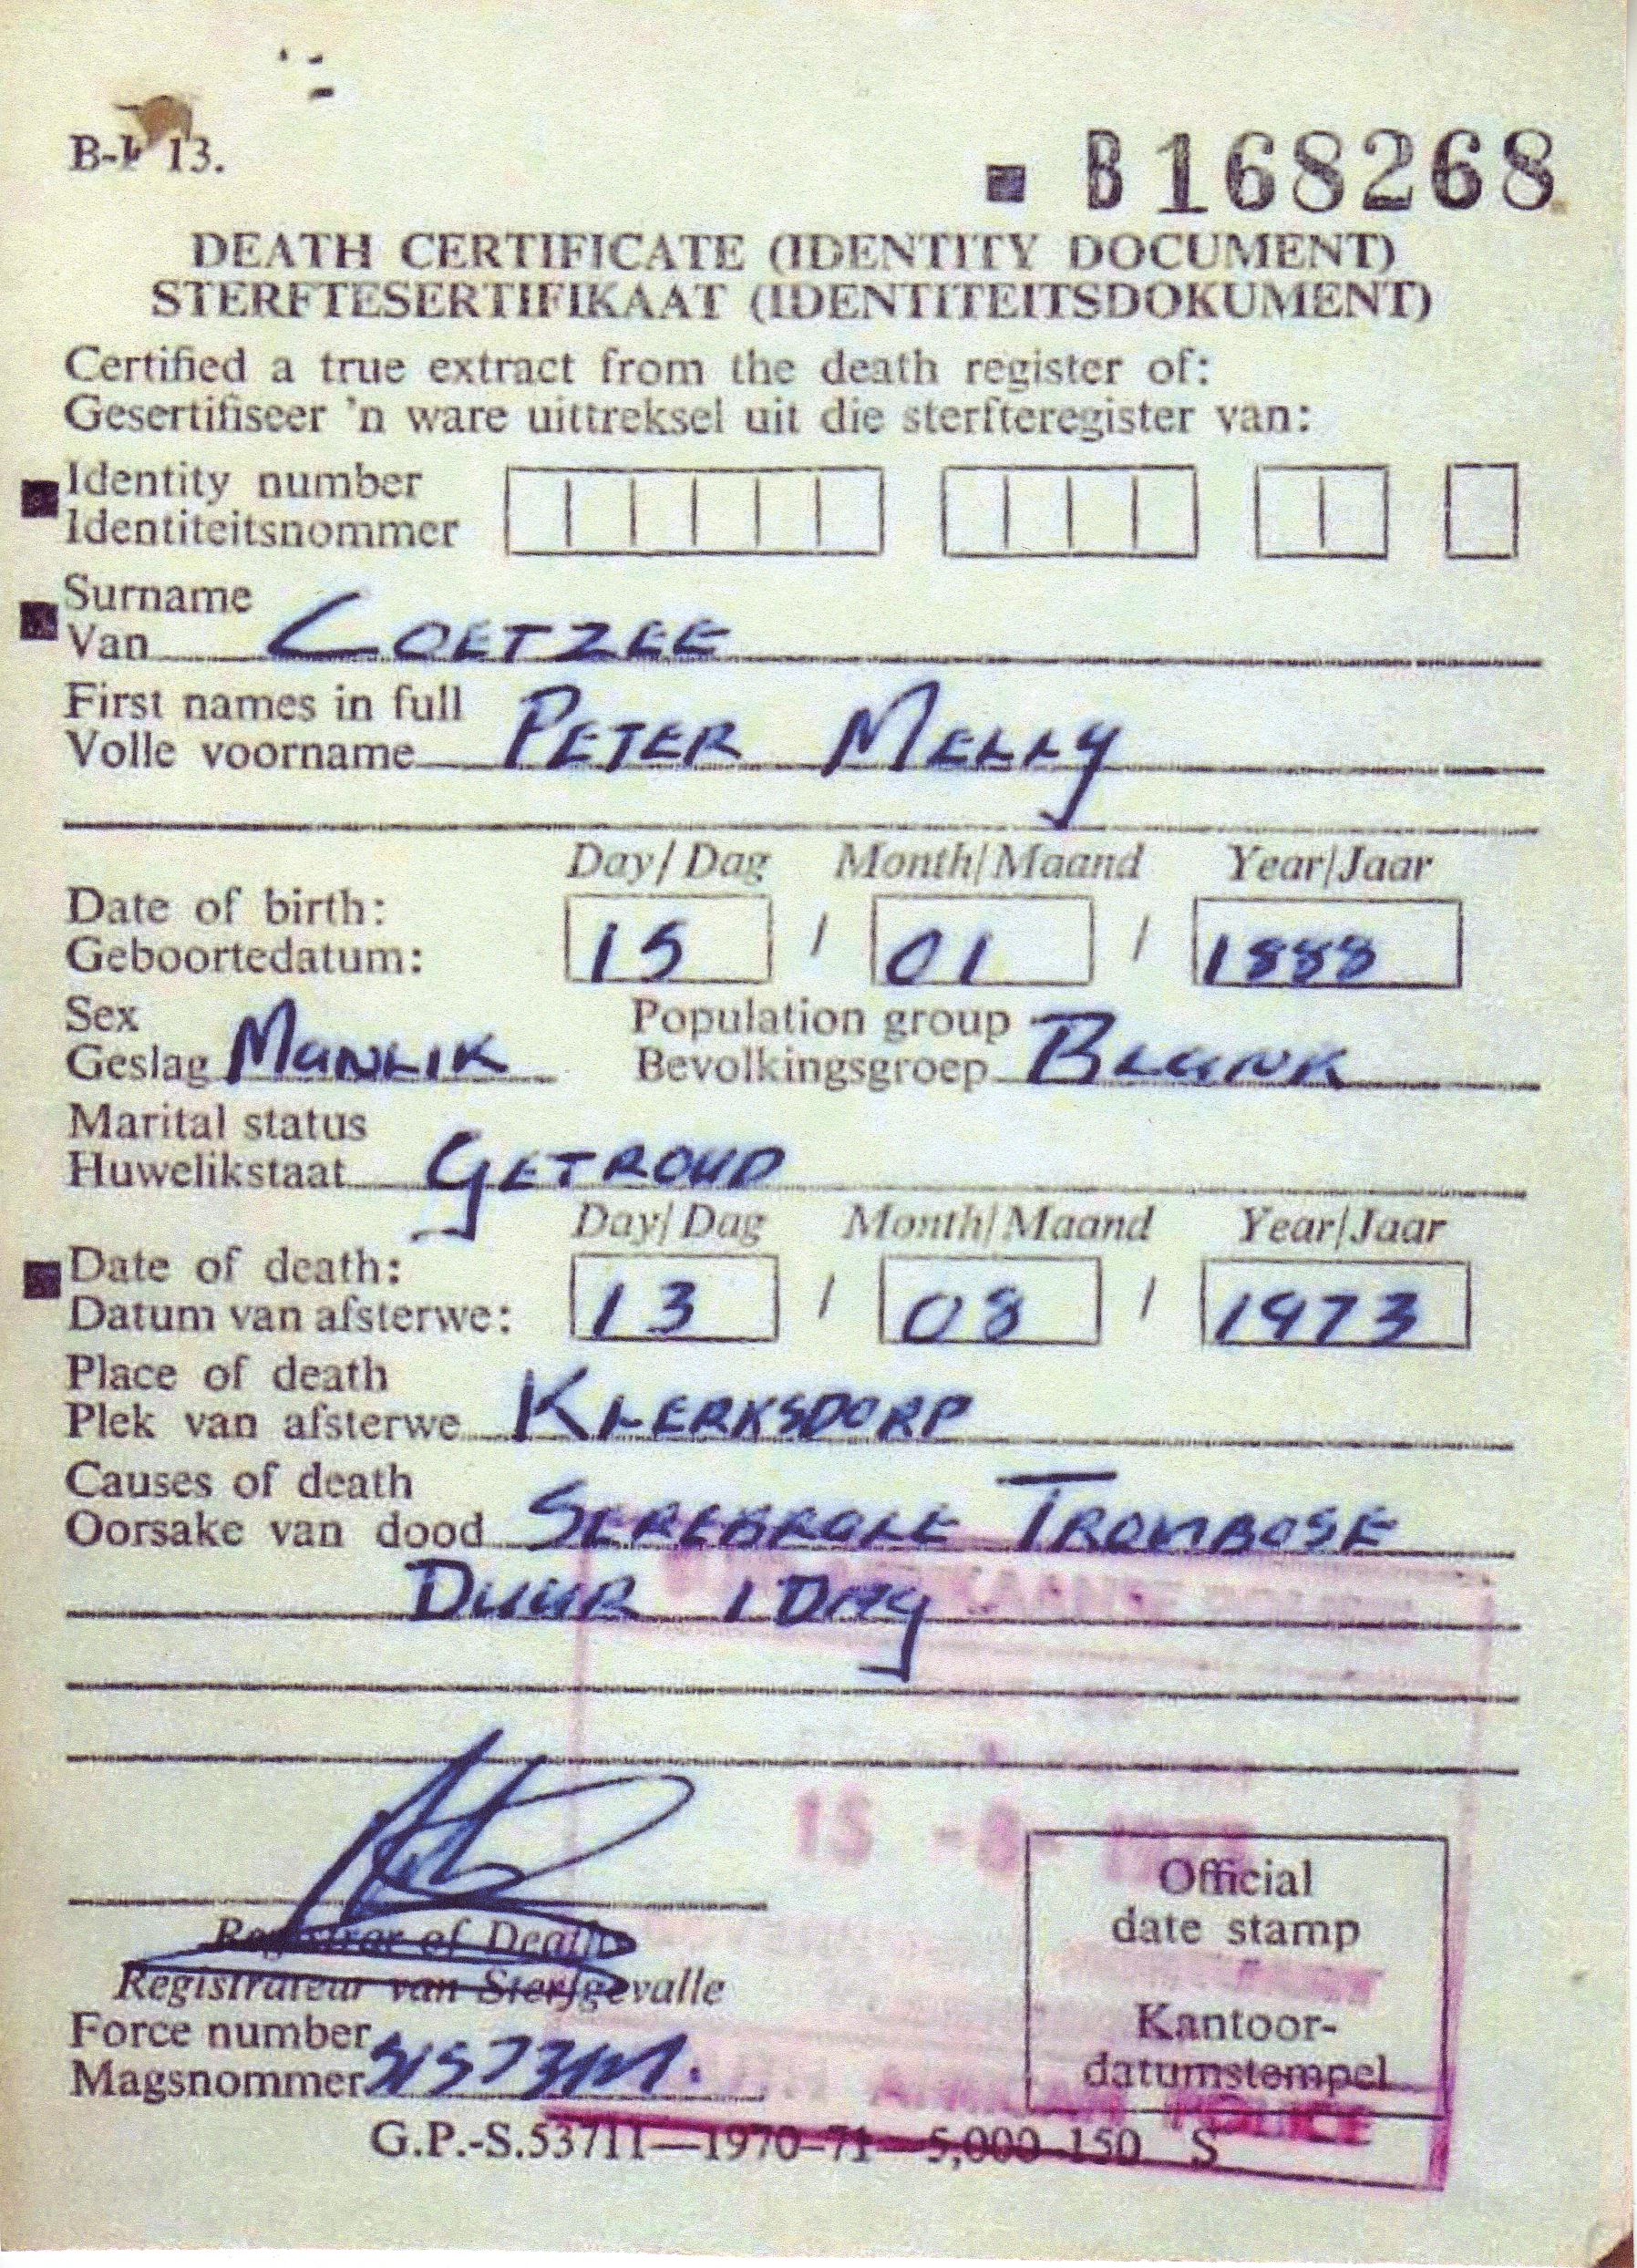 B-I 13.
B168268
DEATH CERTIFICATE (IDENTITY DOCUMENT)
STERFTESERTIFIKAAT (IDENTITEITSDOKUMENT)
Certified a true extract from the death register of:
Gesertifiseer 'n ware uittreksel uit die sterfteregister van:
Identity number
Identiteitsnommer
Surname
Van COETZEE
First names in full
Volle voorname PETER MELLY
Day/Dag Month/Maand Year/Jaar
Date of birth:
Geboortedatum: 15 / 01 / 1888
Sex
Geslag MANLIK
Population group
Bevolkingsgroep BLANK
Marital status
Huwelikstaat GETROUD
Day/Dag Month/Maand Year/Jaar
Date of death:
Datum van afsterwe: 13 / 08 / 1973
Place of death
Plek van afsterwe KLERKSDORP
Causes of death
Oorsake van dood SEREBRALE TROMBOSE
DUUR 1 DAG
15 -8-
Official
date stamp
Kantoor-
datumstempel
Registrar of Deaths
Registrateur van Sterfgevalle
Force number
Magsnommer
AFRICAN POLICE
G.P.-S.53711—1970-71—5,000-150 S